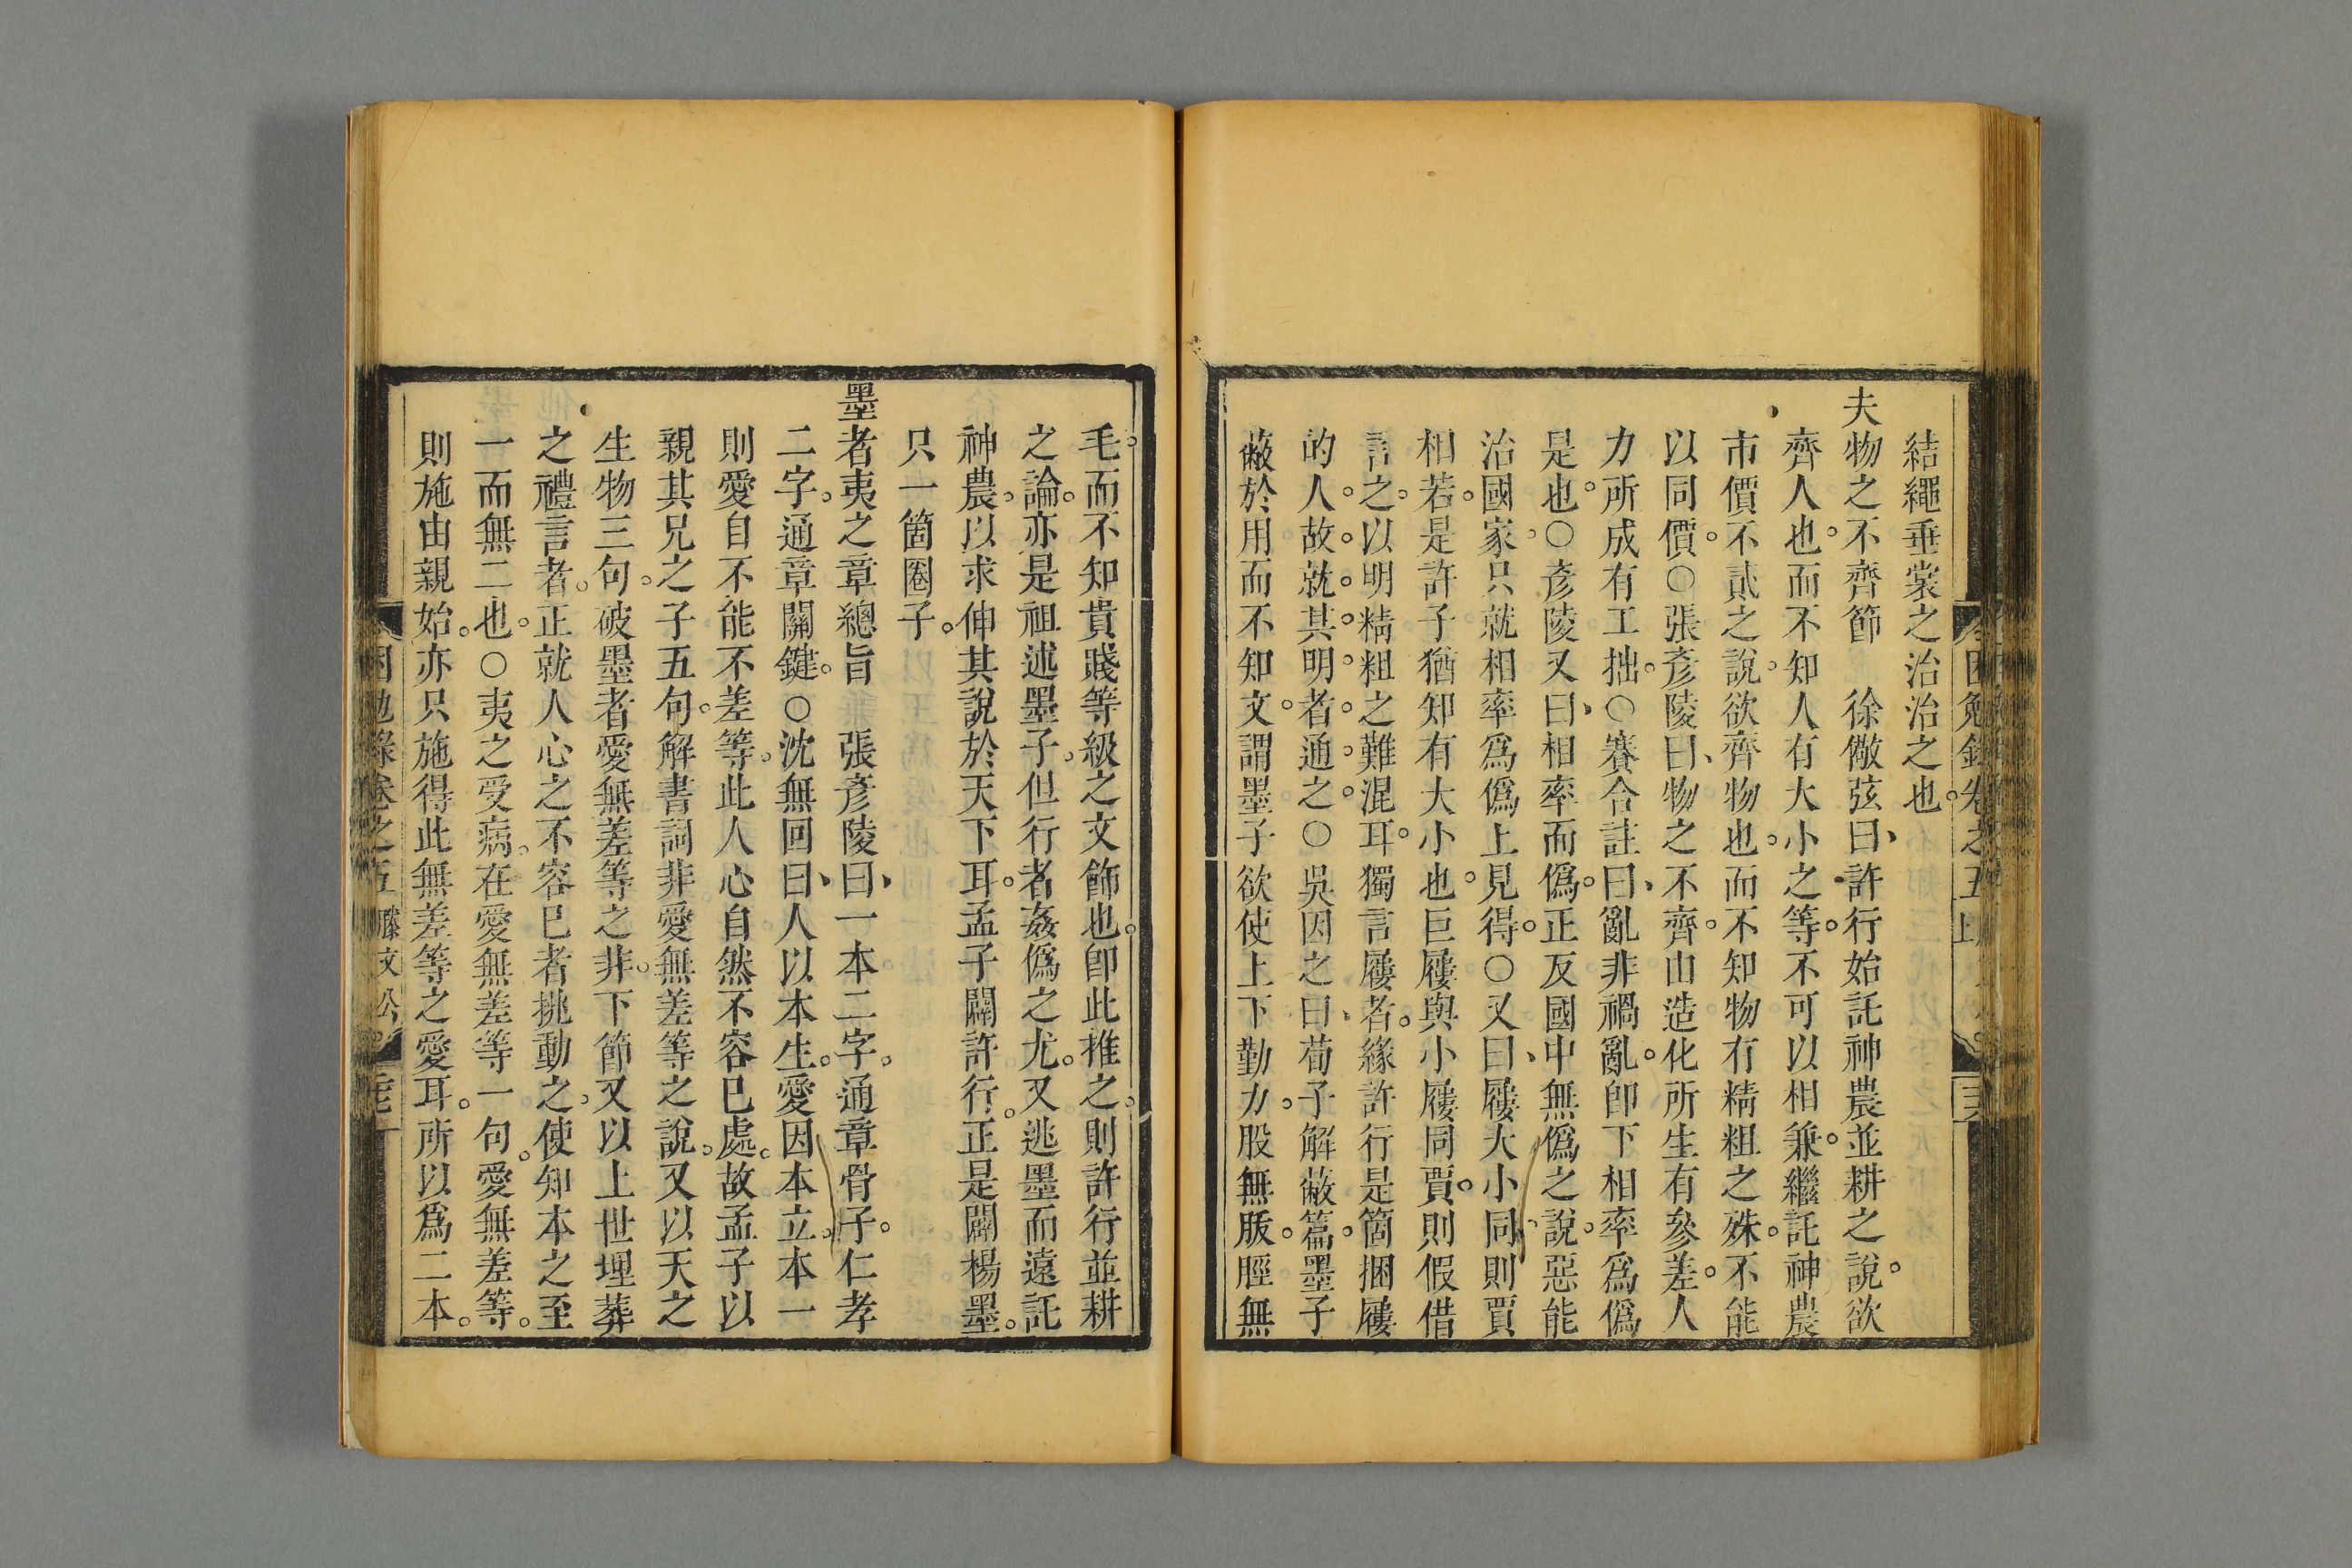 結繩垂裳之治治之也。
夫物之不齊節　徐儆弦曰、許行始託神農並耕之說。欲
齊人也。而不知人有大小之等。不可以相兼。繼託神農
市價不貳之說。欲齊物也。而不知物有精粗之殊。不能
以同價。○張彥陵曰、物之不齊。由造化所生有參差。人
力所成有工拙。○賽合註曰、亂非禍亂。即下相率爲僞
是也。○彥陵又曰、相率而僞。正反國中無僞之說。惡能
治國家。只就相率爲僞上見得。○又曰、屨大小同則賈
相若。是許子猶知有大小也。巨屨與小屨同賈。則假借
言之。以明精粗之難混耳。獨言屨者。緣許行是箇捆屨
的人。故就其明者通之。○吳因之曰、荀子解蔽篇。墨子
蔽於用而不知文。謂墨子欲使上下勤力。股無胈。脛無
毛。而不知貴賤等級之文飾也。即此推之。則許行並耕
之論。亦是祖述墨子。但行者姦僞之尤。又逃墨而遠託
神農。以求伸其說於天下耳。孟子闢許行。正是闢楊墨。
只一箇圈子。
墨者夷之章總旨　張彥陵曰、一本二字。通章骨子。仁孝
二字。通章關鍵。○沈無回曰、人以本生。愛因本立。本一
則愛自不能不差等。此人心自然不容已處。故孟子以
親其兄之子五句。解書詞非愛無差等之說。又以天之
生物三句。破墨者愛無差等之非。下節又以上世埋葬
之禮言者。正就人心之不容已者挑動之。使知本之至
一而無二也。○夷之受病。在愛無差等一句。愛無差等。
則施由親始。亦只施得此無差等之愛耳。所以爲二本。
困勉錄卷之五　滕文公